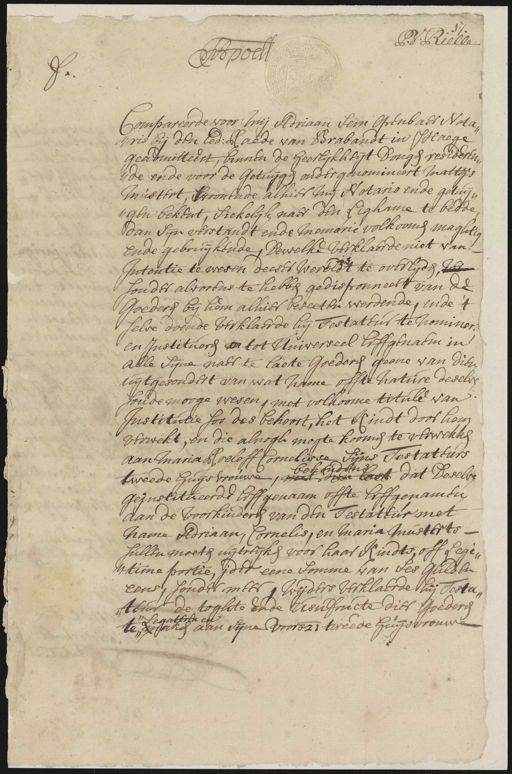 Compareerde voor mij Adriaan Sein Openbaer Nota„
ris bij den Ed: Raede van Brabandt in s'Haege
geadmitteert, binnen de Heerlijkheijt Dongh resideren„
de ende voor de Getuijgen ondergenomineert Mattijs
Mustert, woonende alhier mij Notario ende getuij„
gen bekent, Sieckelijk naer den Lighame te bedde,
dan Sijn verstandt ende memorie volkomen maghtig
ende gebruijkende, Dewelke verklaerde niet van
Intentie te wesen deeser werelt te overlijden
sonder alvorens te hebben gedisponneert van de
Goederen bij hem alhier beseeten werdende, ende 't
selve doende verklaerde hij Testateur te nomineren
en Institueren tot Universeel Erffgenaem in
alle Sijne naer te laete Goederen geene van dien
uijtgesondert van wat name offte nature deselve
soude moogen wesen, met volkoome titule van
Institutie soo des behoort, het Kindt door hem
verwekt, en die alnogh mogte koomen te verwekken
aan Maria Roeloff Cornelisse Sijns Testateurs
tweede Huijsvrouwe, dat deselve
geinstitueerde Erffgenaam offte Erffgenamen
aan de Voorkinderen van den Testateur met
name Adriaan, Cornelis, en Maria Musterts
sullen moeten uijtrijken voor haer Kindts, off Legi„
time portie, jder eene Somme van Ses Guldens
eens, sonder meer, Wijders verklaerde hij Testa„
teur de toghte ende Usufructe dier Goederen
te Legatteren
aan Sijne voors: tweede Huijsvrouwe